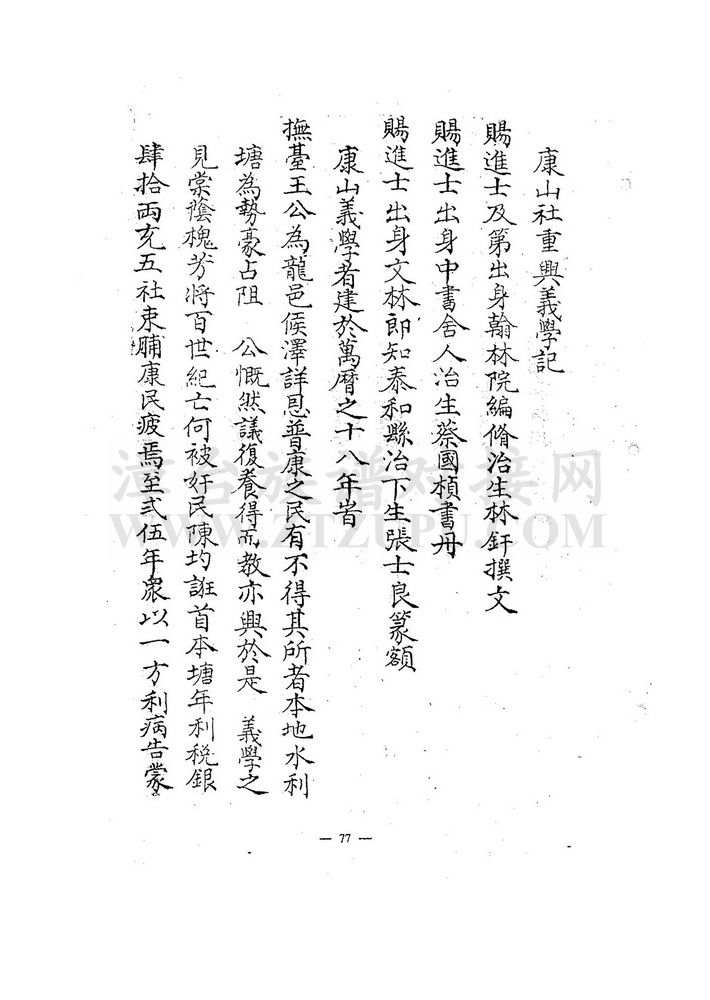 康山社重興義學記
賜進士及第出身翰林院編脩治生林釬撰文
賜進士出身中書舍人治生蔡國楨書丹
賜進士出身文林郎知泰和縣治下生張士良篆額
康山義學者建於萬曆之十八年旹
撫臺王公為龍邑侯澤詳恩普康之民有不得其所者本地水利
塘為勢豪占阻 公慨然議復養得而教亦興於是 義學之
見棠蔭槐芳將百世紀亡何被奸民陳圴誑首本塘年利稅銀
肆拾両充五社束脯康民疲焉至弍伍年衆以一方利病告蒙
— 77 —
漳台族谱对接网
WWW.ZTZUPU.COM